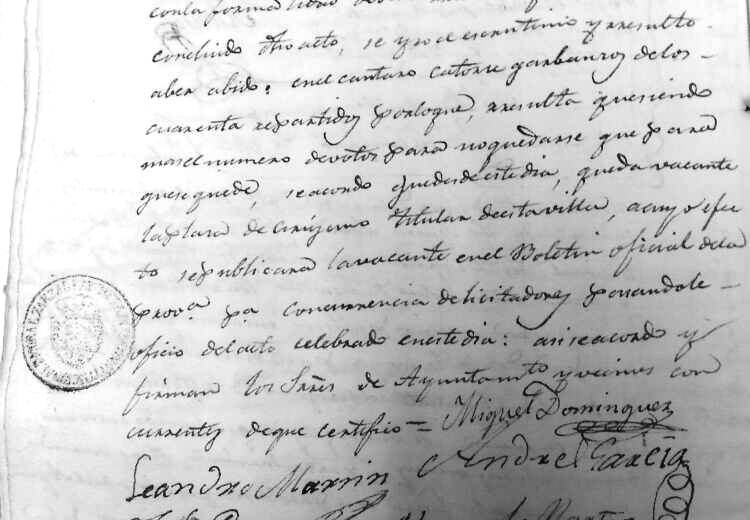 conla formalidad
concluido dho acto, se yzo el escrutinio y rresulto
aber abido: enel cantaro catorse garbanzos delos
cuarenta repartidos porloque, rresulta quesiendo
mas el numero devotos para noquedarse que para
quesequede, seacordo quedesdeestedia, queda vacante
laplaza de cirujano titular deesta villa, acuyo efec
to sepublicara lavacante enel Boletin oficial dela
provª pª concurrencia delicitadores pasandole
oficio del acto celebrado enestedia: asi seacordo y
firman los Sres de Ayuntamto y vecinos con
currentes deque certifico = Miguel Dominguez
Leandro Marin Andres Garcia